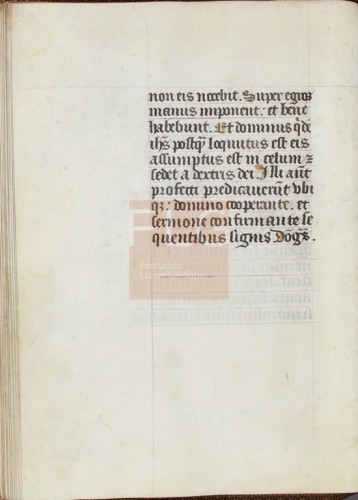 non eis nocebit. Super egros
manus imponent: et bene
habebunt. Et dominus q̇dẽ
ihs postq̃ loquutus est eis
assumptus est in celum ⁊
sedet a dextris dei. Illi aũt
profecti predicauerũt vbi
qꝫ: domino cooperante. et
sermonẽ confirmante se
quentibus signis Dõgꝛ̃s.